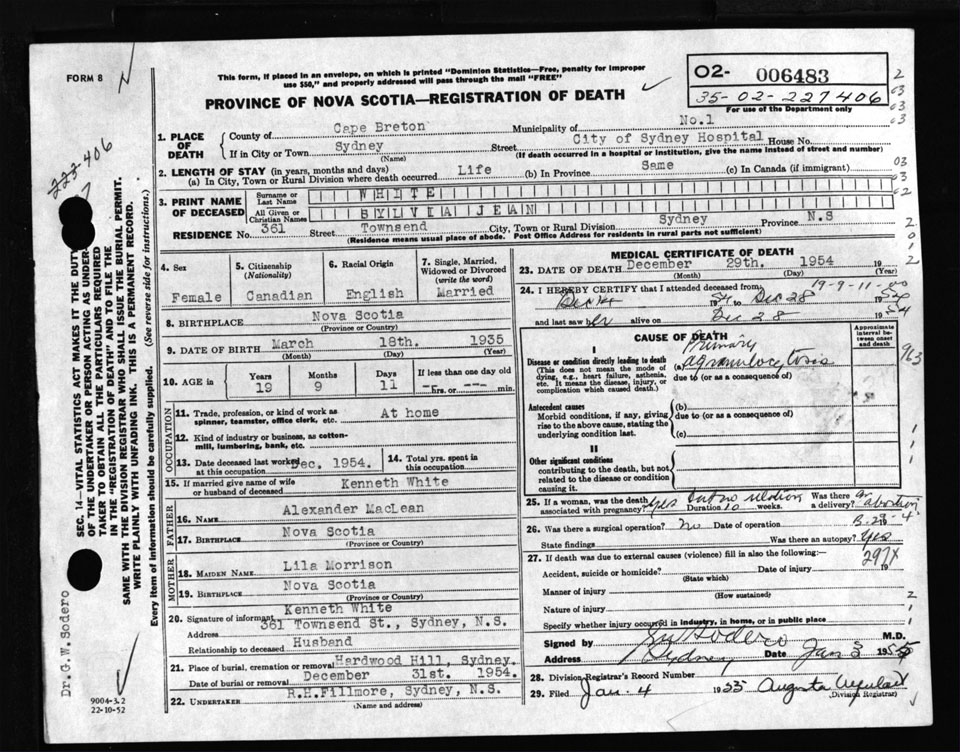 FORM 8
This form, if placed in an envelope, on which is printed "Dominion Statistics—Free, penalty for improper
use $50," and properly addressed will pass through the mail "FREE"
PROVINCE OF NOVA SCOTIA—REGISTRATION OF DEATH
O2- 006483
35-02-227406
For use of the Department only
1. PLACE OF DEATH
County of Cape Breton Municipality of No.1
If in City or Town Sydney Street City of Sydney Hospital House No.
(Name) (If death occurred in a hospital or institution, give the name instead of street and number)
2. LENGTH OF STAY (in years, months and days)
(a) In City, Town or Rural Division where death occurred Life (b) In Province Same (c) In Canada (if immigrant)
3. PRINT NAME OF DECEASED
Surname or Last Name WHITE
All Given or Christian Names SYLVIA JEAN
RESIDENCE No. 361 Street Townsend City, Town or Rural Division Sydney Province N.S
(Residence means usual place of abode. Post Office Address for residents in rural parts not sufficient)
4. Sex
Female
5. Citizenship
(Nationality)
Canadian
6. Racial Origin
English
7. Single, Married, Widowed or Divorced
(write the word)
Married
8. BIRTHPLACE Nova Scotia
(Province or Country)
9. DATE OF BIRTH March 18th. 1935
(Month) (Day) (Year)
10. AGE in
Years Months Days If less than one day
19 9 11 hrs. or min.
OCCUPATION
11. Trade, profession, or kind of work as spinner, teamster, office clerk, etc. At home
12. Kind of industry or business, as cotton-mill, lumbering, bank, etc.
13. Date deceased last worked at this occupation Dec. 1954.
14. Total yrs. spent in this occupation
15. If married give name of wife or husband of deceased Kenneth White
FATHER
16. NAME Alexander MacLean
17. BIRTHPLACE Nova Scotia
(Province or Country)
MOTHER
18. MAIDEN NAME Lila Morrison
19. BIRTHPLACE Nova Scotia
(Province or Country)
20. Signature of informant Kenneth White
Address 361 Townsend St., Sydney, N.S.
Relationship to deceased Husband
21. Place of burial, cremation or removal Hardwood Hill, Sydney.
Date of burial or removal December 31st. 1954.
22. UNDERTAKER R.H.Fillmore, Sydney, N.S.
(Name and address)
MEDICAL CERTIFICATE OF DEATH
23. DATE OF DEATH December 29th. 1954 19
(Month) (Day) (Year)
24. I HEREBY CERTIFY that I attended deceased from 19-9-11
54 to Dec 28 1954
and last saw her alive on Dec 28 1954
CAUSE OF DEATH
Approximate interval between onset and death
Disease or condition directly leading to death
(This does not mean the mode of dying, e.g., heart failure, asthenia, etc. It means the disease, injury, or complication which caused death.)
Primary
(a) agranulocytosis
due to (or as a consequence of)
Antecedent causes
Morbid conditions, if any, giving rise to the above cause, stating the underlying condition last.
(b)
due to (or as a consequence of)
(c)
II
Other significant conditions
contributing to the death, but not related to the disease or condition causing it.
963
25. If a woman, was the death associated with pregnancy? yes but no relation Duration 10 weeks. Was there a delivery? or abortion
26. Was there a surgical operation? no Date of operation
State findings Was there an autopsy? yes
27. If death was due to external causes (violence) fill in also the following:—
297X
Accident, suicide or homicide? Date of injury 19
(State which)
Manner of injury
(How sustained)
Nature of injury
Specify whether injury occurred in industry, in home, or in public place
Signed by GW Sodero M.D.
Address Sydney Date Jan 3 1955
28. Division Registrar's Record Number
29. Filed Jan. 4 1955 Augusta
(Division Registrar)
SEC. 14—VITAL STATISTICS ACT MAKES IT THE DUTY
OF THE UNDERTAKER OR PERSON ACTING AS UNDER-
TAKER TO OBTAIN ALL THE PARTICULARS REQUIRED
IN THE "REGISTRATION OF DEATH" AND TO FILE THE
SAME WITH THE DIVISION REGISTRAR WHO SHALL ISSUE THE BURIAL PERMIT.
WRITE PLAINLY WITH UNFADING INK. THIS IS A PERMANENT RECORD.
Every item of information should be carefully supplied. (See reverse side for instructions.)
Dr. G.W. Sodero
9004-3.2
22-10-52